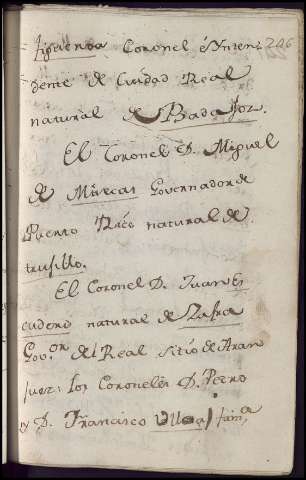 figueroa Coronel é Ynten: 206
dente de Ciudad Real
natural de Badajoz.
El Coronel D. Miguel
de Muecas Governador de
Puerto Rico natural de
trugillo.
El Coronel D. Juan Es
cudero natural de Zafra
Gov.or del Real Sitio de Aran
juez: los Coroneles D. Pedro
y D. Francisco Ulloa, fam.a